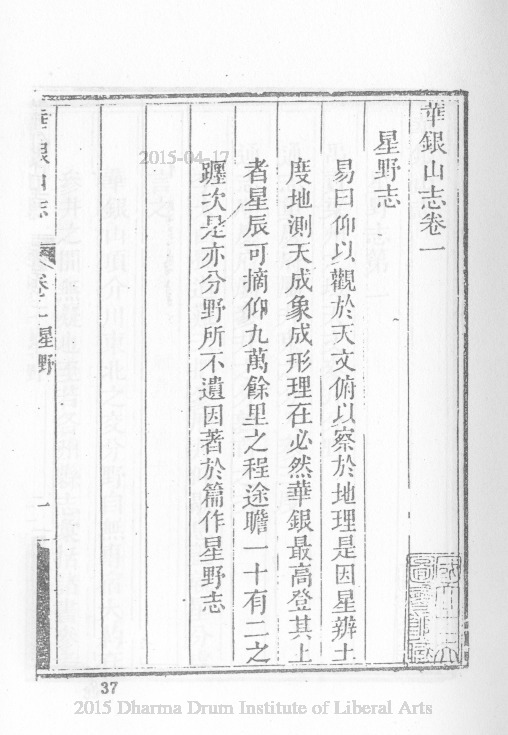 華銀山志卷一
星野志
易曰仰以觀於天文俯以察於地理是因星辨土
度地測天成象成形理在必然華銀最高登其上
者星辰可摘仰九萬餘里之程途瞻一十有二之
躔次是亦分野所不遺因著於篇作星野志
華銀山志 卷一 星野 一
2015-04-17
37
2015 Dharma Drum Institute of Liberal Arts